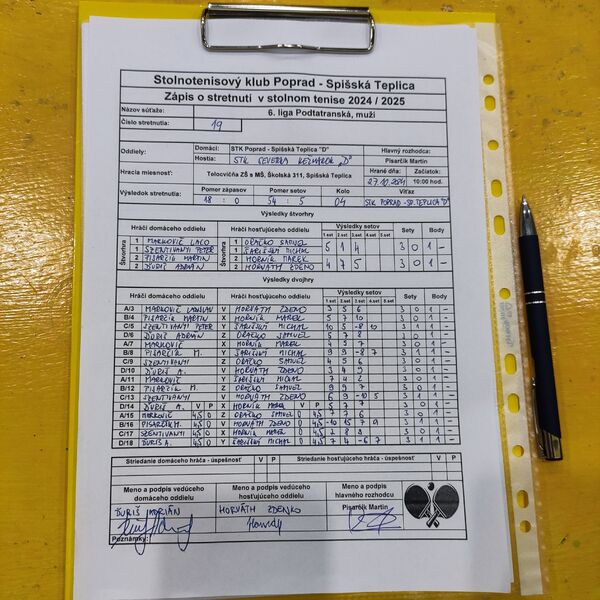 Stolnotenisový klub Poprad - Spišská Teplica
Zápis o stretnutí v stolnom tenise 2024 / 2025
Názov súťaže: 6. liga Podtatranská, muži
Číslo stretnutia: 19
Oddiely: Domáci: STK Poprad - Spišská Teplica "D" Hlavný rozhodca:
Hostia: STK SEVERKA KEŽMAROK "D" Pisarčík Martin
Hracia miesnosť: Telocvičňa ZŠ s MŠ, Školská 311, Spišská Teplica Hrané dňa: Začiatok:
27.10.2024 10:00 hod.
Výsledok stretnutia: Pomer zápasov Pomer setov Kolo Víťaz
18 : 0 54 : 5 04 STK POPRAD-SP.TEPLICA "D"
Výsledky štvorhry
Hráči domáceho oddielu Hráči hosťujúceho oddielu Výsledky setov Sety Body
1.set 2.set 3.set 4.set 5.set
Štvorhra 1 MARKOVIČ LACO Štvorhra 1 ORAČKO SAMUEL 5 1 4 3 0 1 -
1 SZENTIVANYI PETER 1 ŠARIŠSKÝ MICHAL
2 PISARČÍK MARTIN 2 HORNÍK MAREK 4 7 5 3 0 1 -
2 ĎURIŠ ADRIÁN 2 HORVÁTH ZDENO
Výsledky dvojhry
Hráči domáceho oddielu Hráči hosťujúceho oddielu Výsledky setov Sety Body
1.set 2.set 3.set 4.set 5.set
A/3 MARKOVIČ LADISLAV V HORVÁTH ZDENO 3 5 6 3 0 1 -
B/4 PISARČÍK MARTIN X HORNÍK MAREK 5 7 10 3 0 1 -
C/5 SZENTIVANYI PETER Y ŠARIŠSKÝ MICHAL 10 5 -8 10 3 1 1 -
D/6 ĎURIŠ ADRIÁN Z ORAČKO SAMUEL 5 7 8 3 0 1 -
A/7 MARKOVIČ X HORNÍK MAREK 4 5 7 3 0 1 -
B/8 PISARČÍK M. Y ŠARIŠSKÝ MICHAL 9 9 -8 7 3 1 1 -
C/9 SZENTIVANYI Z ORAČKO SAMUEL 4 5 6 3 0 1 -
D/10 ĎURIŠ A. V HORVÁTH ZDENO 3 4 9 3 0 1 -
A/11 MARKOVIČ Y ŠARIŠSKÝ MICHAL 7 4 2 3 0 1 -
B/12 PISARČÍK M. Z ORAČKO SAMUEL 9 9 7 3 0 1 -
C/13 SZENTIVANYI V HORVÁTH ZDENO 6 9 -10 5 3 1 1 -
D/14 ĎURIŠ A. V P X HORNÍK MAREK V P 5 7 7 3 0 1 -
A/15 MARKOVIČ 45 0 Z ORAČKO SAMUEL 0 45 7 7 6 3 0 1 -
B/16 PISARČÍK M. 45 0 V HORVÁTH ZDENO 0 45 -10 15 7 9 3 1 1 -
C/17 SZENTIVANYI 45 0 X HORNÍK MAREK 0 45 2 8 9 3 0 1 -
D/18 ĎURIŠ A. 45 0 Y ŠARIŠSKÝ MICHAL 0 45 7 4 -6 7 3 1 1 -
Striedanie domáceho hráča - úspešnosť V P Striedanie hosťujúceho hráča - úspešnosť V P
Meno a podpis vedúceho domáceho oddielu Meno a podpis vedúceho hosťujúceho oddielu Meno a podpis hlavného rozhodcu
ĎURIŠ ADRIÁN HORVÁTH ZDENKO Pisarčík Martin
Poznámky: